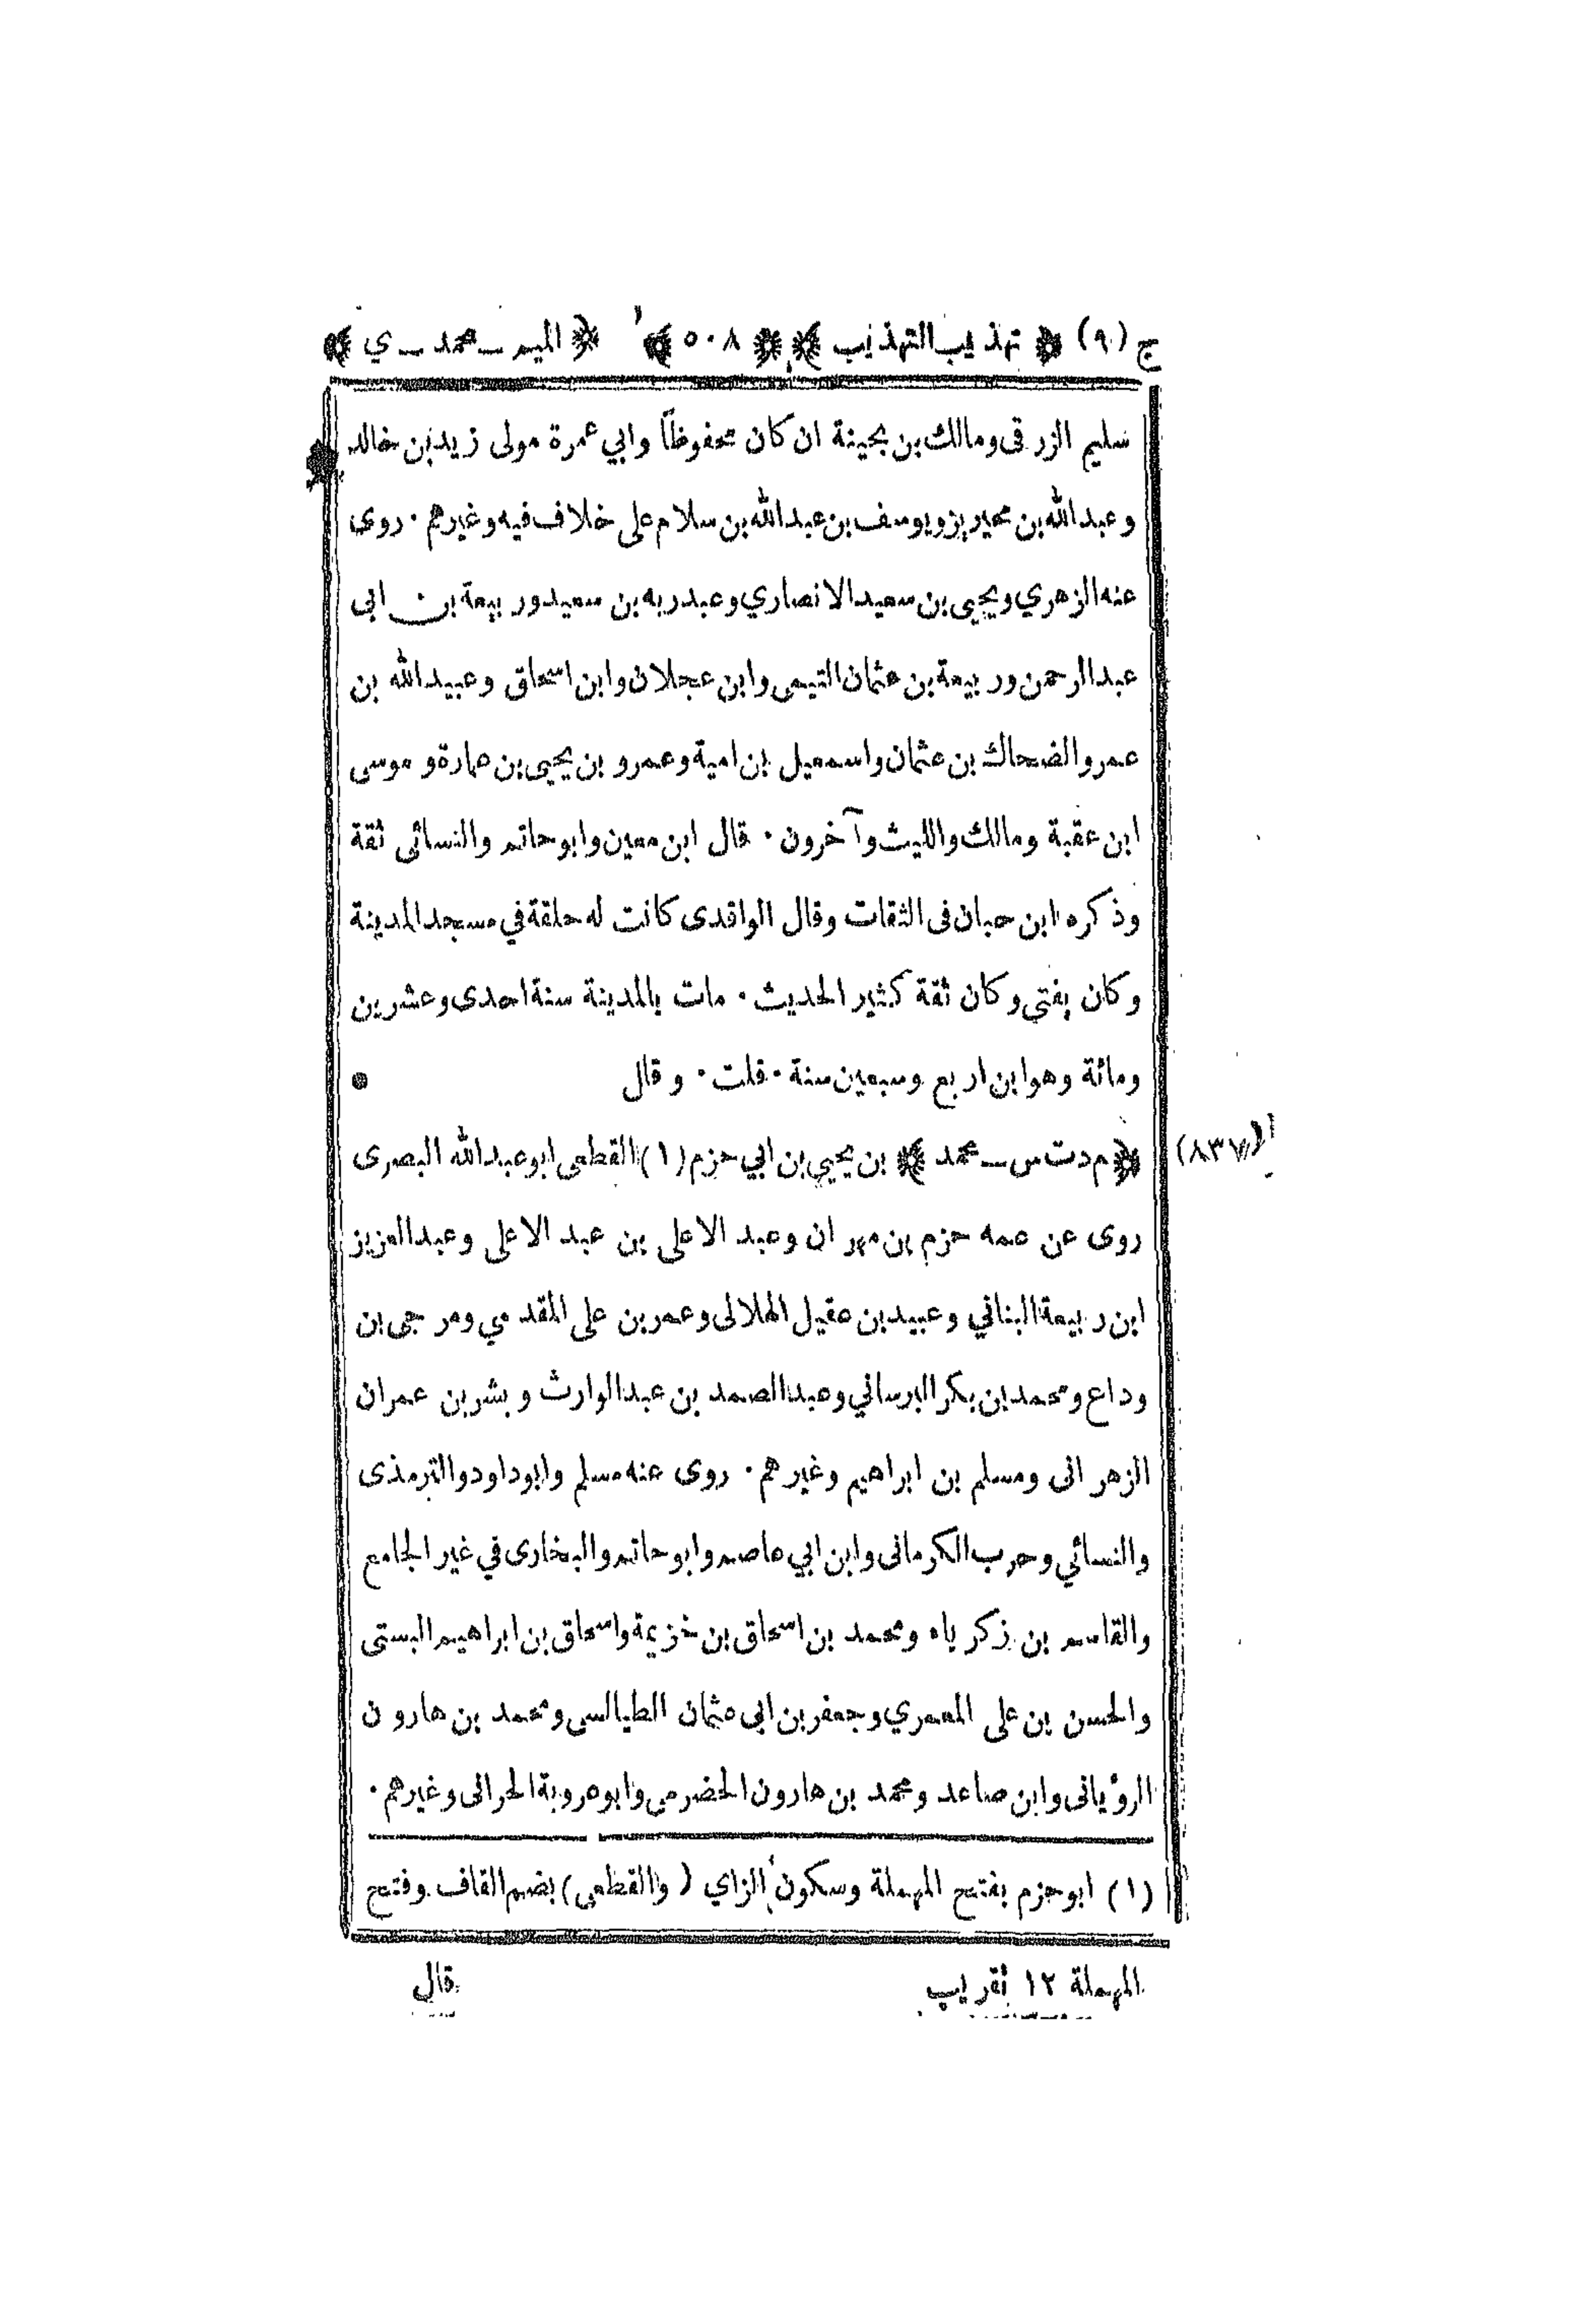 ج (٩) ﴿ تهذيب التهذيب ﴾ ﴿ ٥٠٨ ﴾ ﴿ الميم ـ محمد ـ ي ﴾
سليم الزرقى ومالك بن بحينة ان كان محفوظاً وابي عمرة مولى زيد بن خالد
وعبد الله بن محيريز ويوسف بن عبد الله بن سلام على خلاف فيه وغيرهم ٠ روى
عنه الزهري ويحيى بن سعيد الانصاري وعبد ربه بن سعيد وربيعة بن ابى
عبد الرحمن وربيعة بن عثمان التيمى وابن عجلان وابن اسحاق وعبيد الله بن
عمر والضحاك بن عثمان واسمعيل بن امية وعمرو بن يحيى بن عمارة وموسى
ابن عقبة ومالك والليث وآخرون ٠ قال ابن معين وابو حاتم والنسائى ثقة
وذكره ابن حبان فى الثقات وقال الواقدى كانت له حلقة في مسجد المدينة
وكان يفتي وكان ثقة كثير الحديث ٠ مات بالمدينة سنة احدى وعشرين
ومائة وهو ابن اربع وسبعين سنة ٠ قلت ٠ وقال
(٨٣٧) ﴿ م د ت س ـ محمد ﴾ بن يحيى بن ابي حزم (١) القطعى ابو عبد الله البصرى
روى عن عمه حزم بن مهران وعبد الاعلى بن عبد الاعلى وعبد العزيز
ابن ربيعة البناني وعبيد بن عقيل الهلالى وعمر بن على المقدمي ومرجى بن
وداع ومحمد بن بكر البرساني وعبد الصمد بن عبد الوارث وبشر بن عمران
الزهرانى ومسلم بن ابراهيم وغيرهم ٠ روى عنه مسلم وابو داود والترمذى
والنسائي وحرب الكرمانى وابن ابي عاصم وابو حاتم والبخارى في غير الجامع
والقاسم بن زكرياء ومحمد بن اسحاق بن خزيمة واسحاق بن ابراهيم البستى
والحسن بن على المعمري وجعفر بن ابى عثمان الطيالسى ومحمد بن هارون
الرؤيانى وابن صاعد ومحمد بن هارون الحضرمى وابو عروبة الحرانى وغيرهم ٠
(١) ابو حزم بفتح المهملة وسكون الزاي (والقطعى) بضم القاف وفتح
المهملة ١٢ تقريب
قال